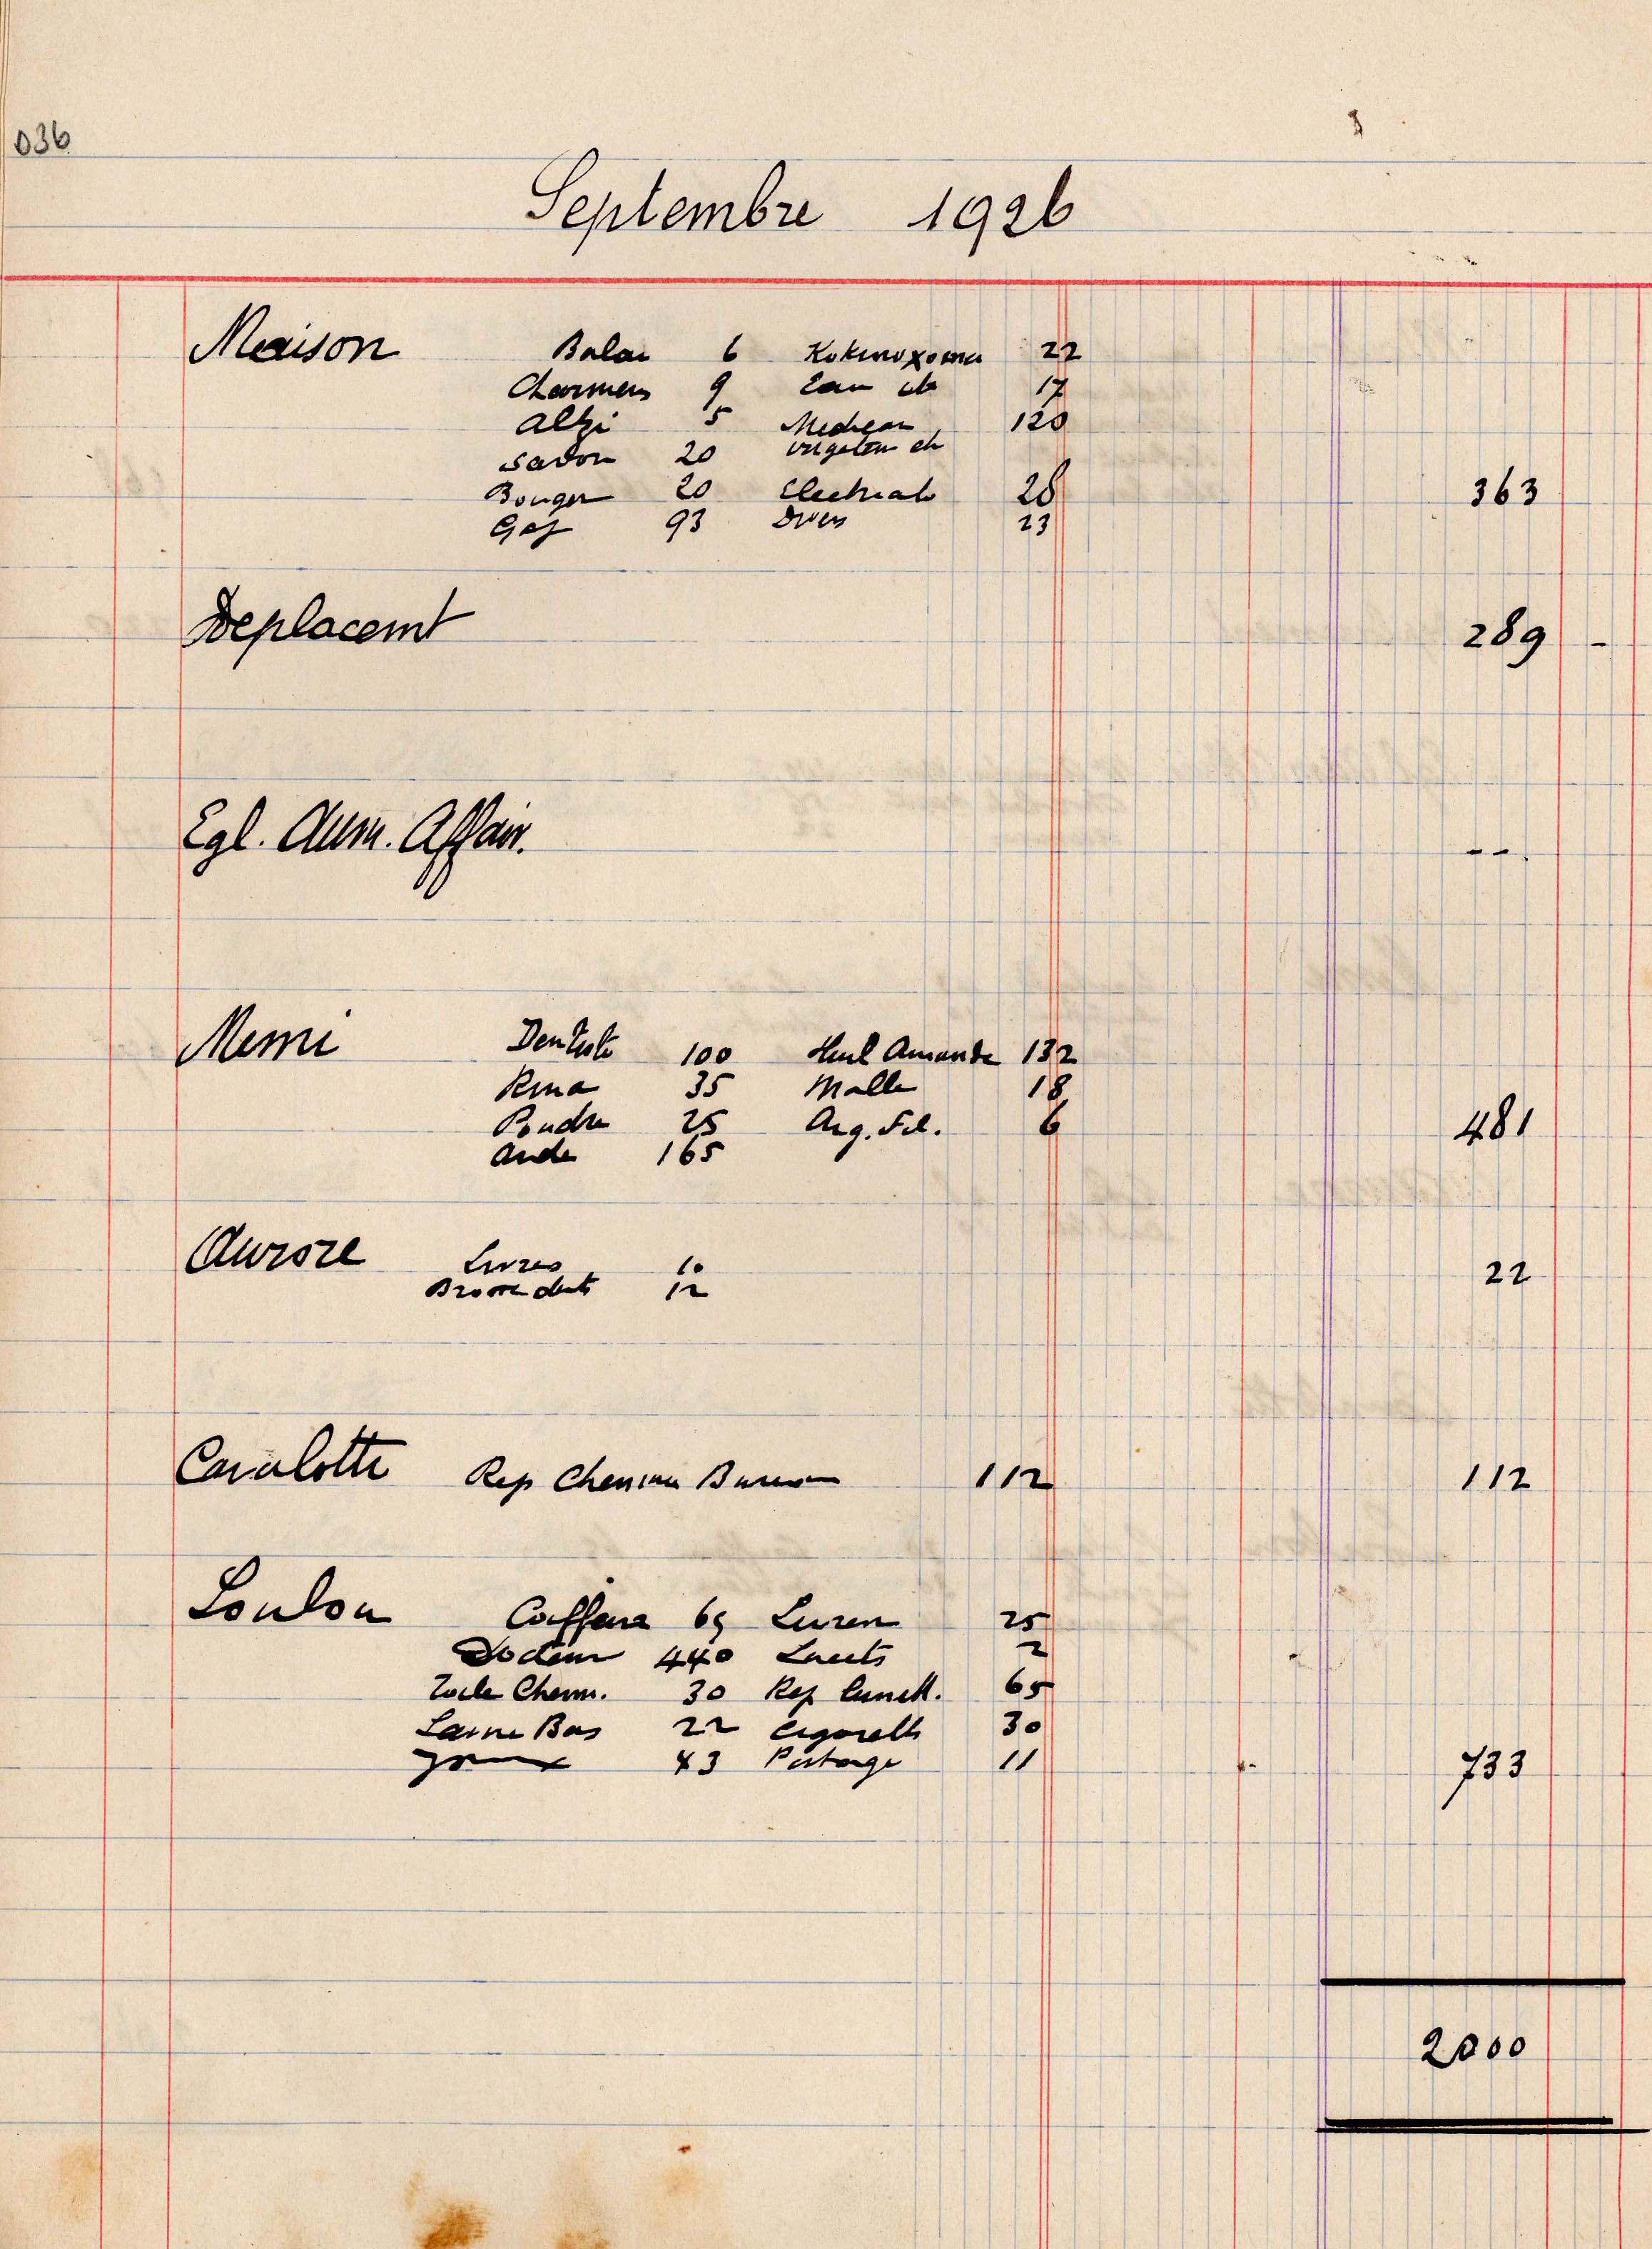 036
Septembre 1926
Maison Balai 6 22
9 Eau 17
5 120
Savon 20
20 28
Gaz 93 Divers 23
363
Deplacemt 289 -
Egl. Aum. Affair. --.
Memi Dentiste 100 Huil Amande 132
Rina 35 Malle 18
Poudre 25 Arg. Fil. 6
165
481
Aurore Livres 10
Brosse dents 12
22
Cavalotti Rep Chemin Bureau 112 112
Loulou Coiffeur 65 25
Docteur 440 Lacets 2
Toile Chem. 30 Rep lunett. 65
Laine Bas 22 Cigarett 30
43 Partage 11
733
2000